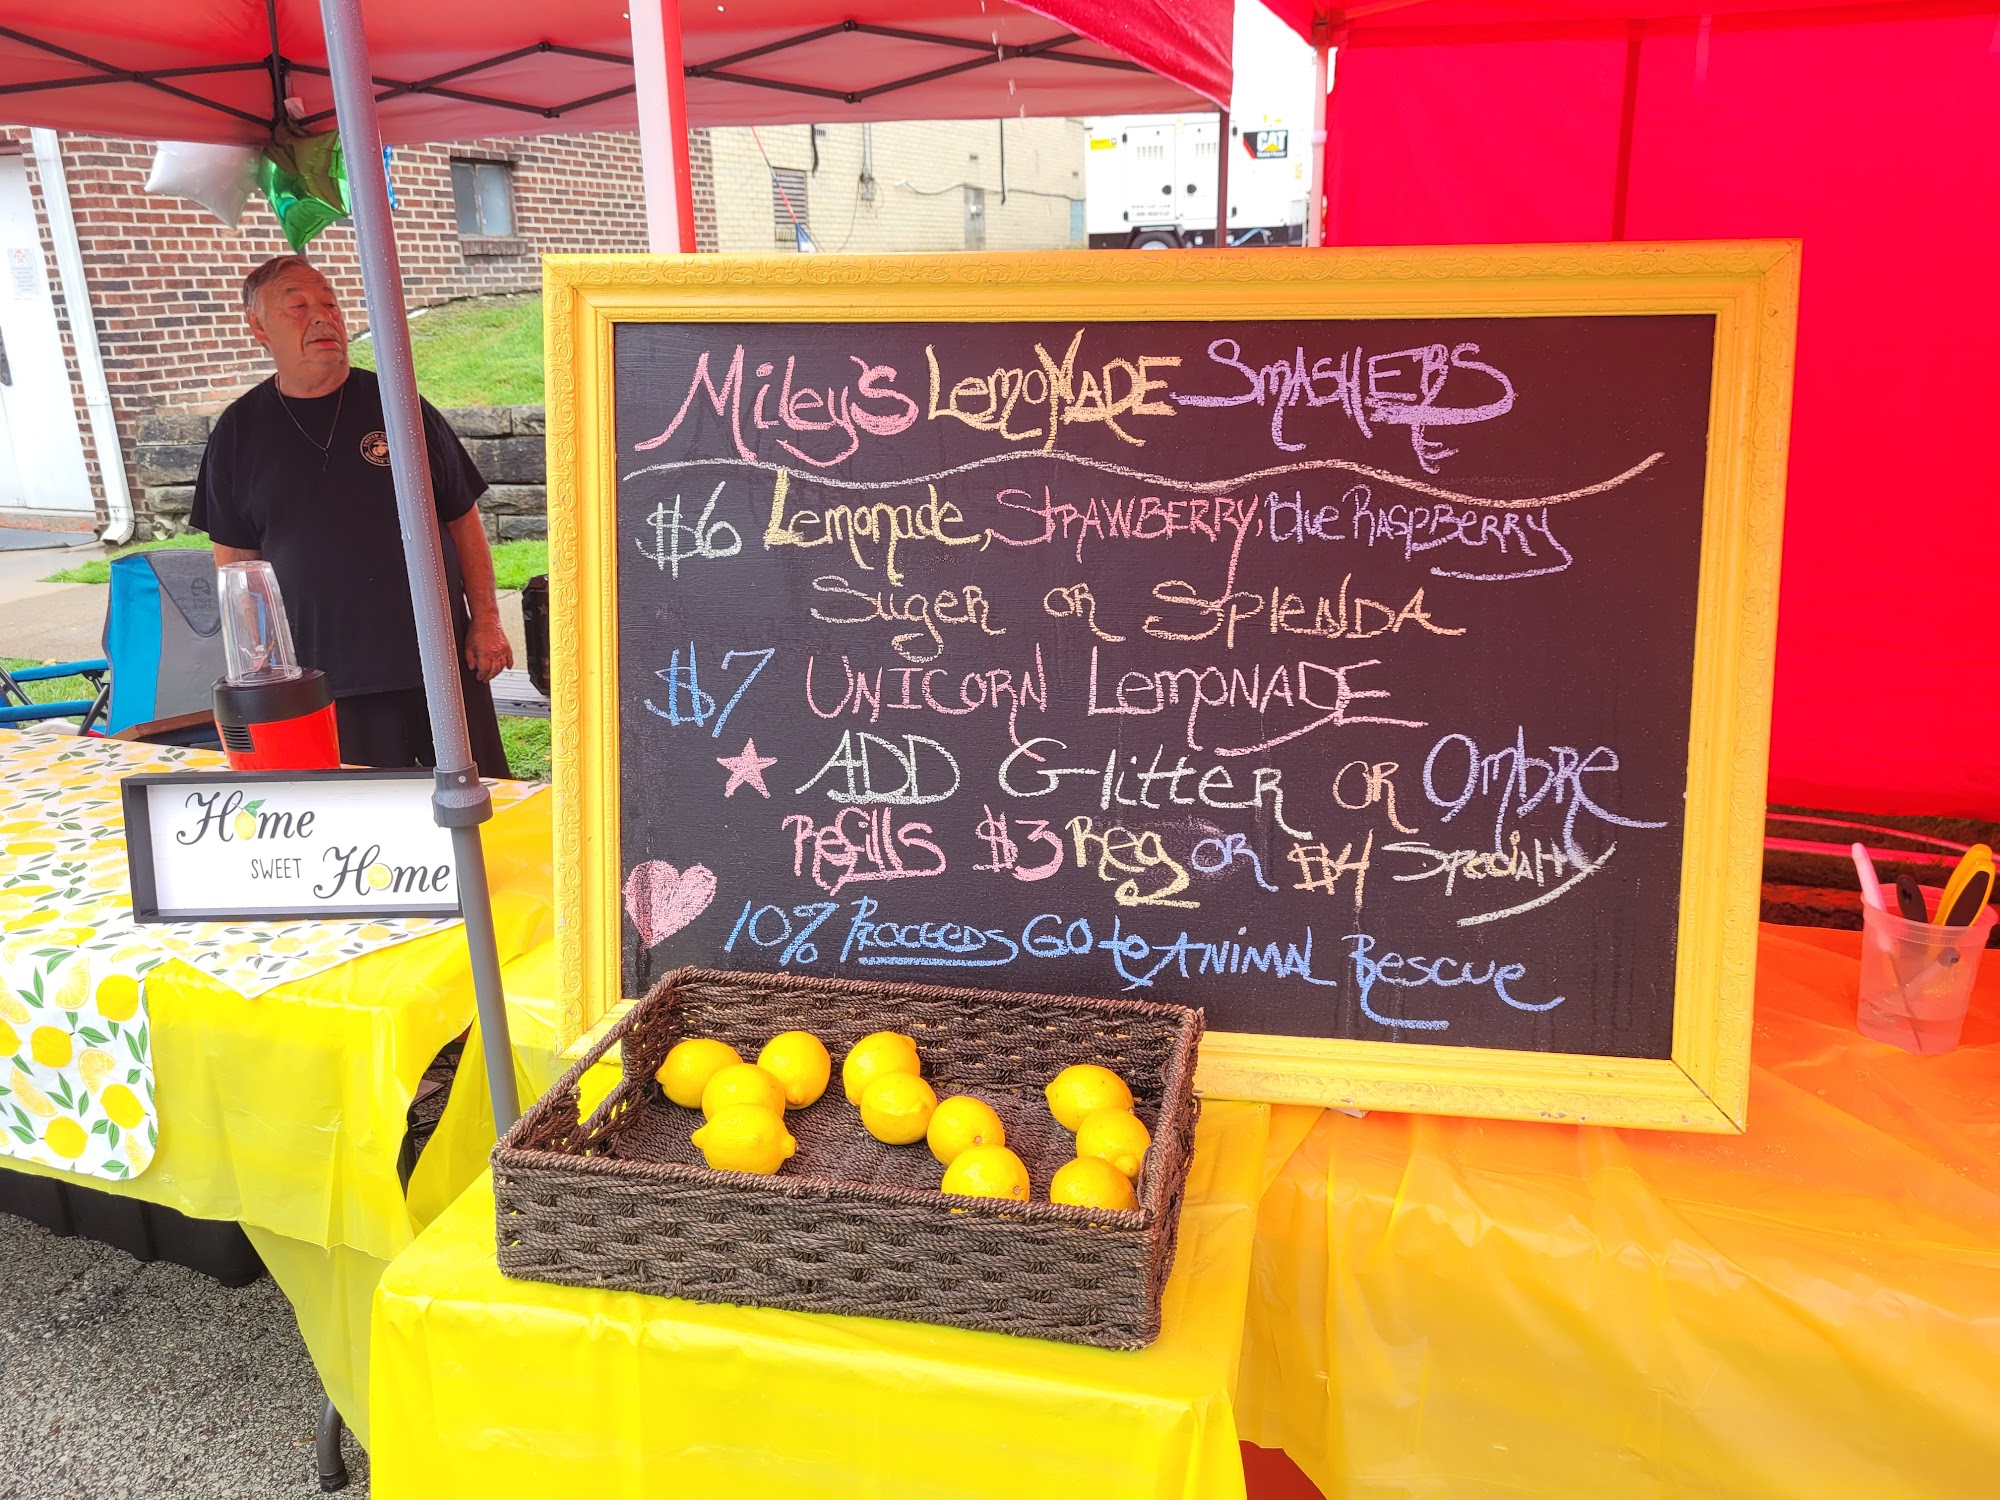 Miley's Lemonade Smashers
$6 Lemonade, Strawberry, Blue Raspberry
Suger or Splenda
$7 Unicorn Lemonade
★ ADD Glitter or Ombre
Refills $3 Reg or $4 Specialty
10% Proceeds Go to Animal Rescue
Home
SWEET
Home
CAT